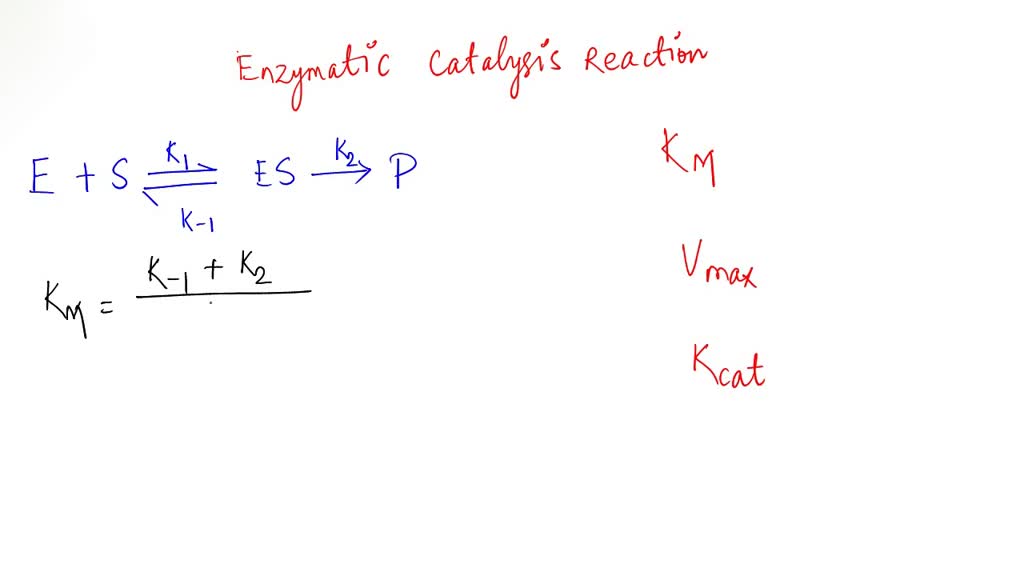 Enzymatic Catalysis Reaction
E + S ⇌ ES → P
K1 K2
K-1
KM = K-1 + K2
KM
Vmax
Kcat